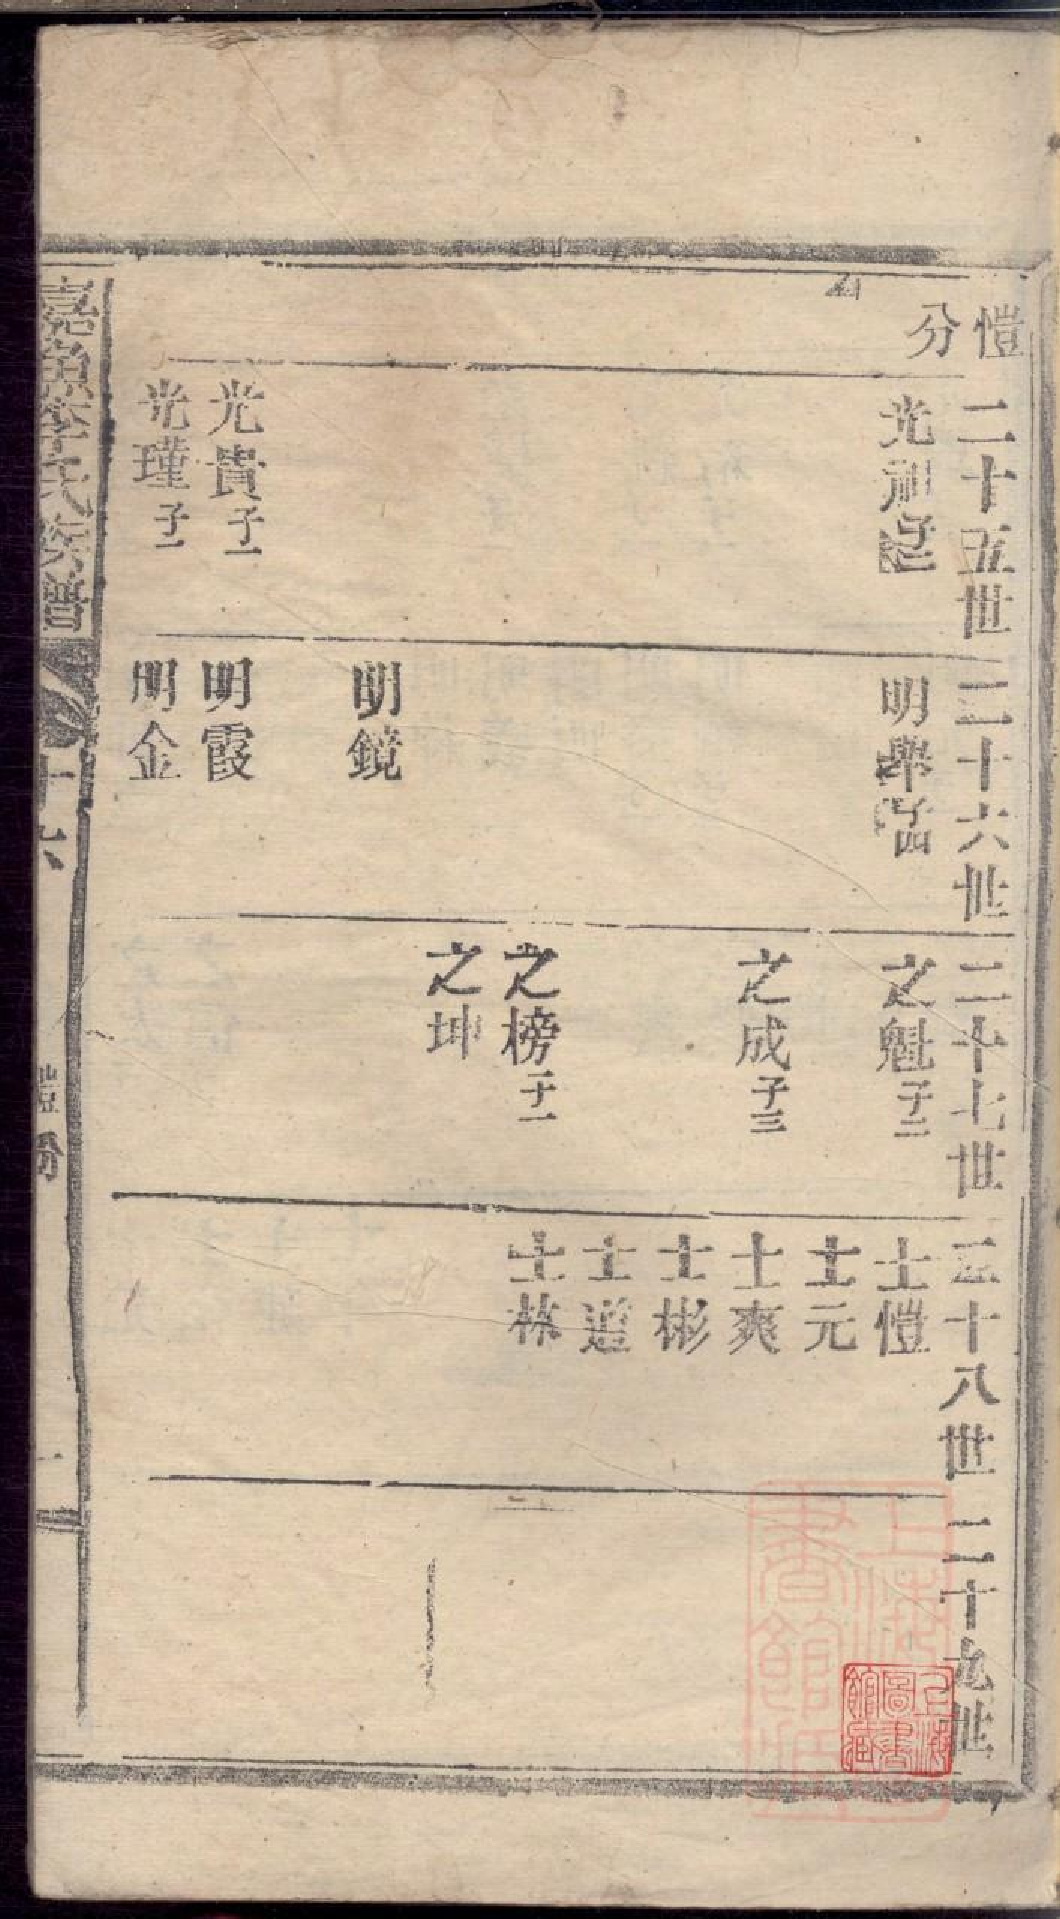 愷分
二十五世
二十六世
二十七世
二十八世
二十九世
光祖子二
明舉子四
之魁子二
士愷
士元
之成子三
士爽
士彬
士道
之榜子一
士林
之坤
明鏡
光貴子一
明霞
光瑾子一
明金
嘉魚李氏族譜
十六
愷分
上海圖書館藏